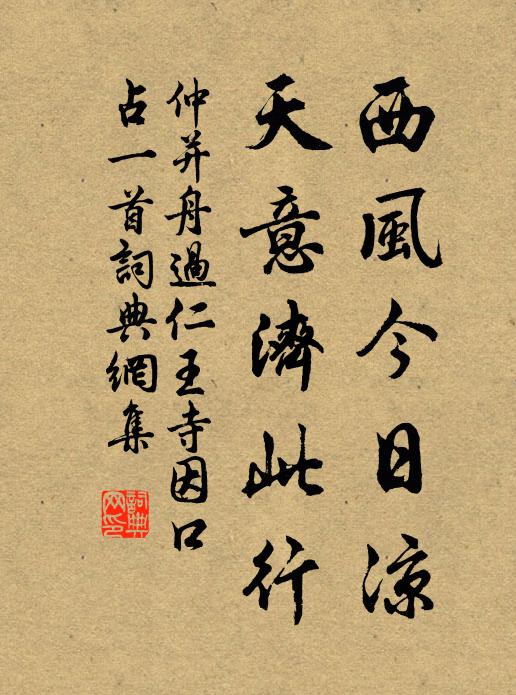 西風今日涼
天意濟此行
仲并舟過仁王寺因口
占一首詞典網集
詞典
网印